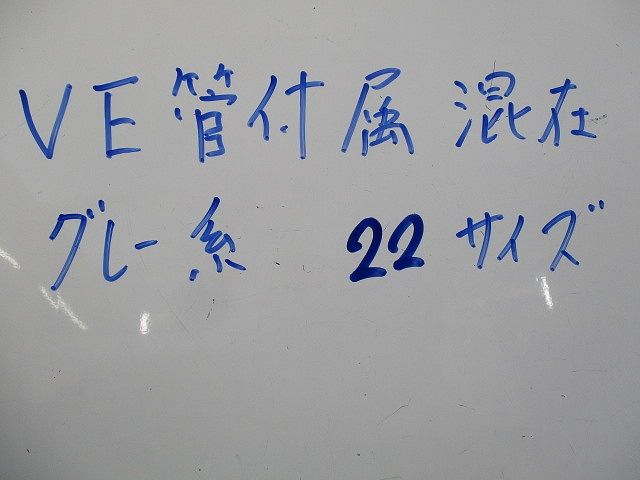 VE管付属混在
グレー系 22サイズ